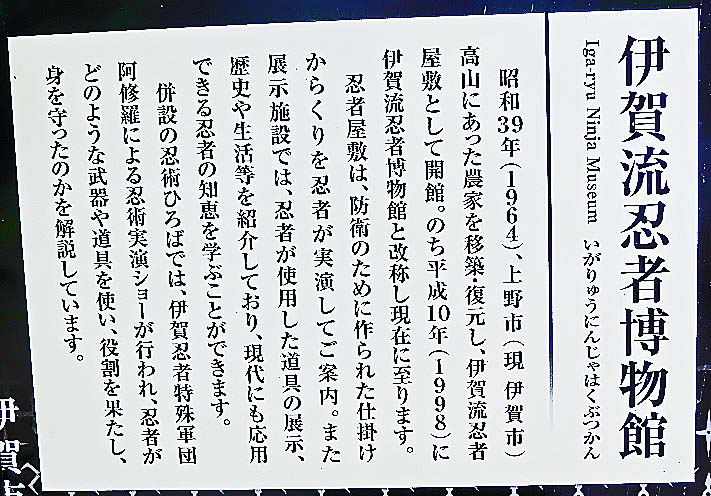 伊賀流忍者博物館
Iga-ryu Ninja Museum いがりゅうにんじゃはくぶつかん
昭和39年(1964)、上野市(現 伊賀市)
高山にあった農家を移築・復元し、伊賀流忍者
屋敷として開館。のち平成10年(1998)に
伊賀流忍者博物館と改称し現在に至ります。
忍者屋敷は、防衛のために作られた仕掛け
からくりを忍者が実演してご案内。また
展示施設では、忍者が使用した道具の展示、
歴史や生活等を紹介しており、現代にも応用
できる忍者の知恵を学ぶことができます。
併設の忍術ひろばでは、伊賀忍者特殊軍団
阿修羅による忍術実演ショーが行われ、忍者が
どのような武器や道具を使い、役割を果たし、
身を守ったのかを解説しています。
伊賀